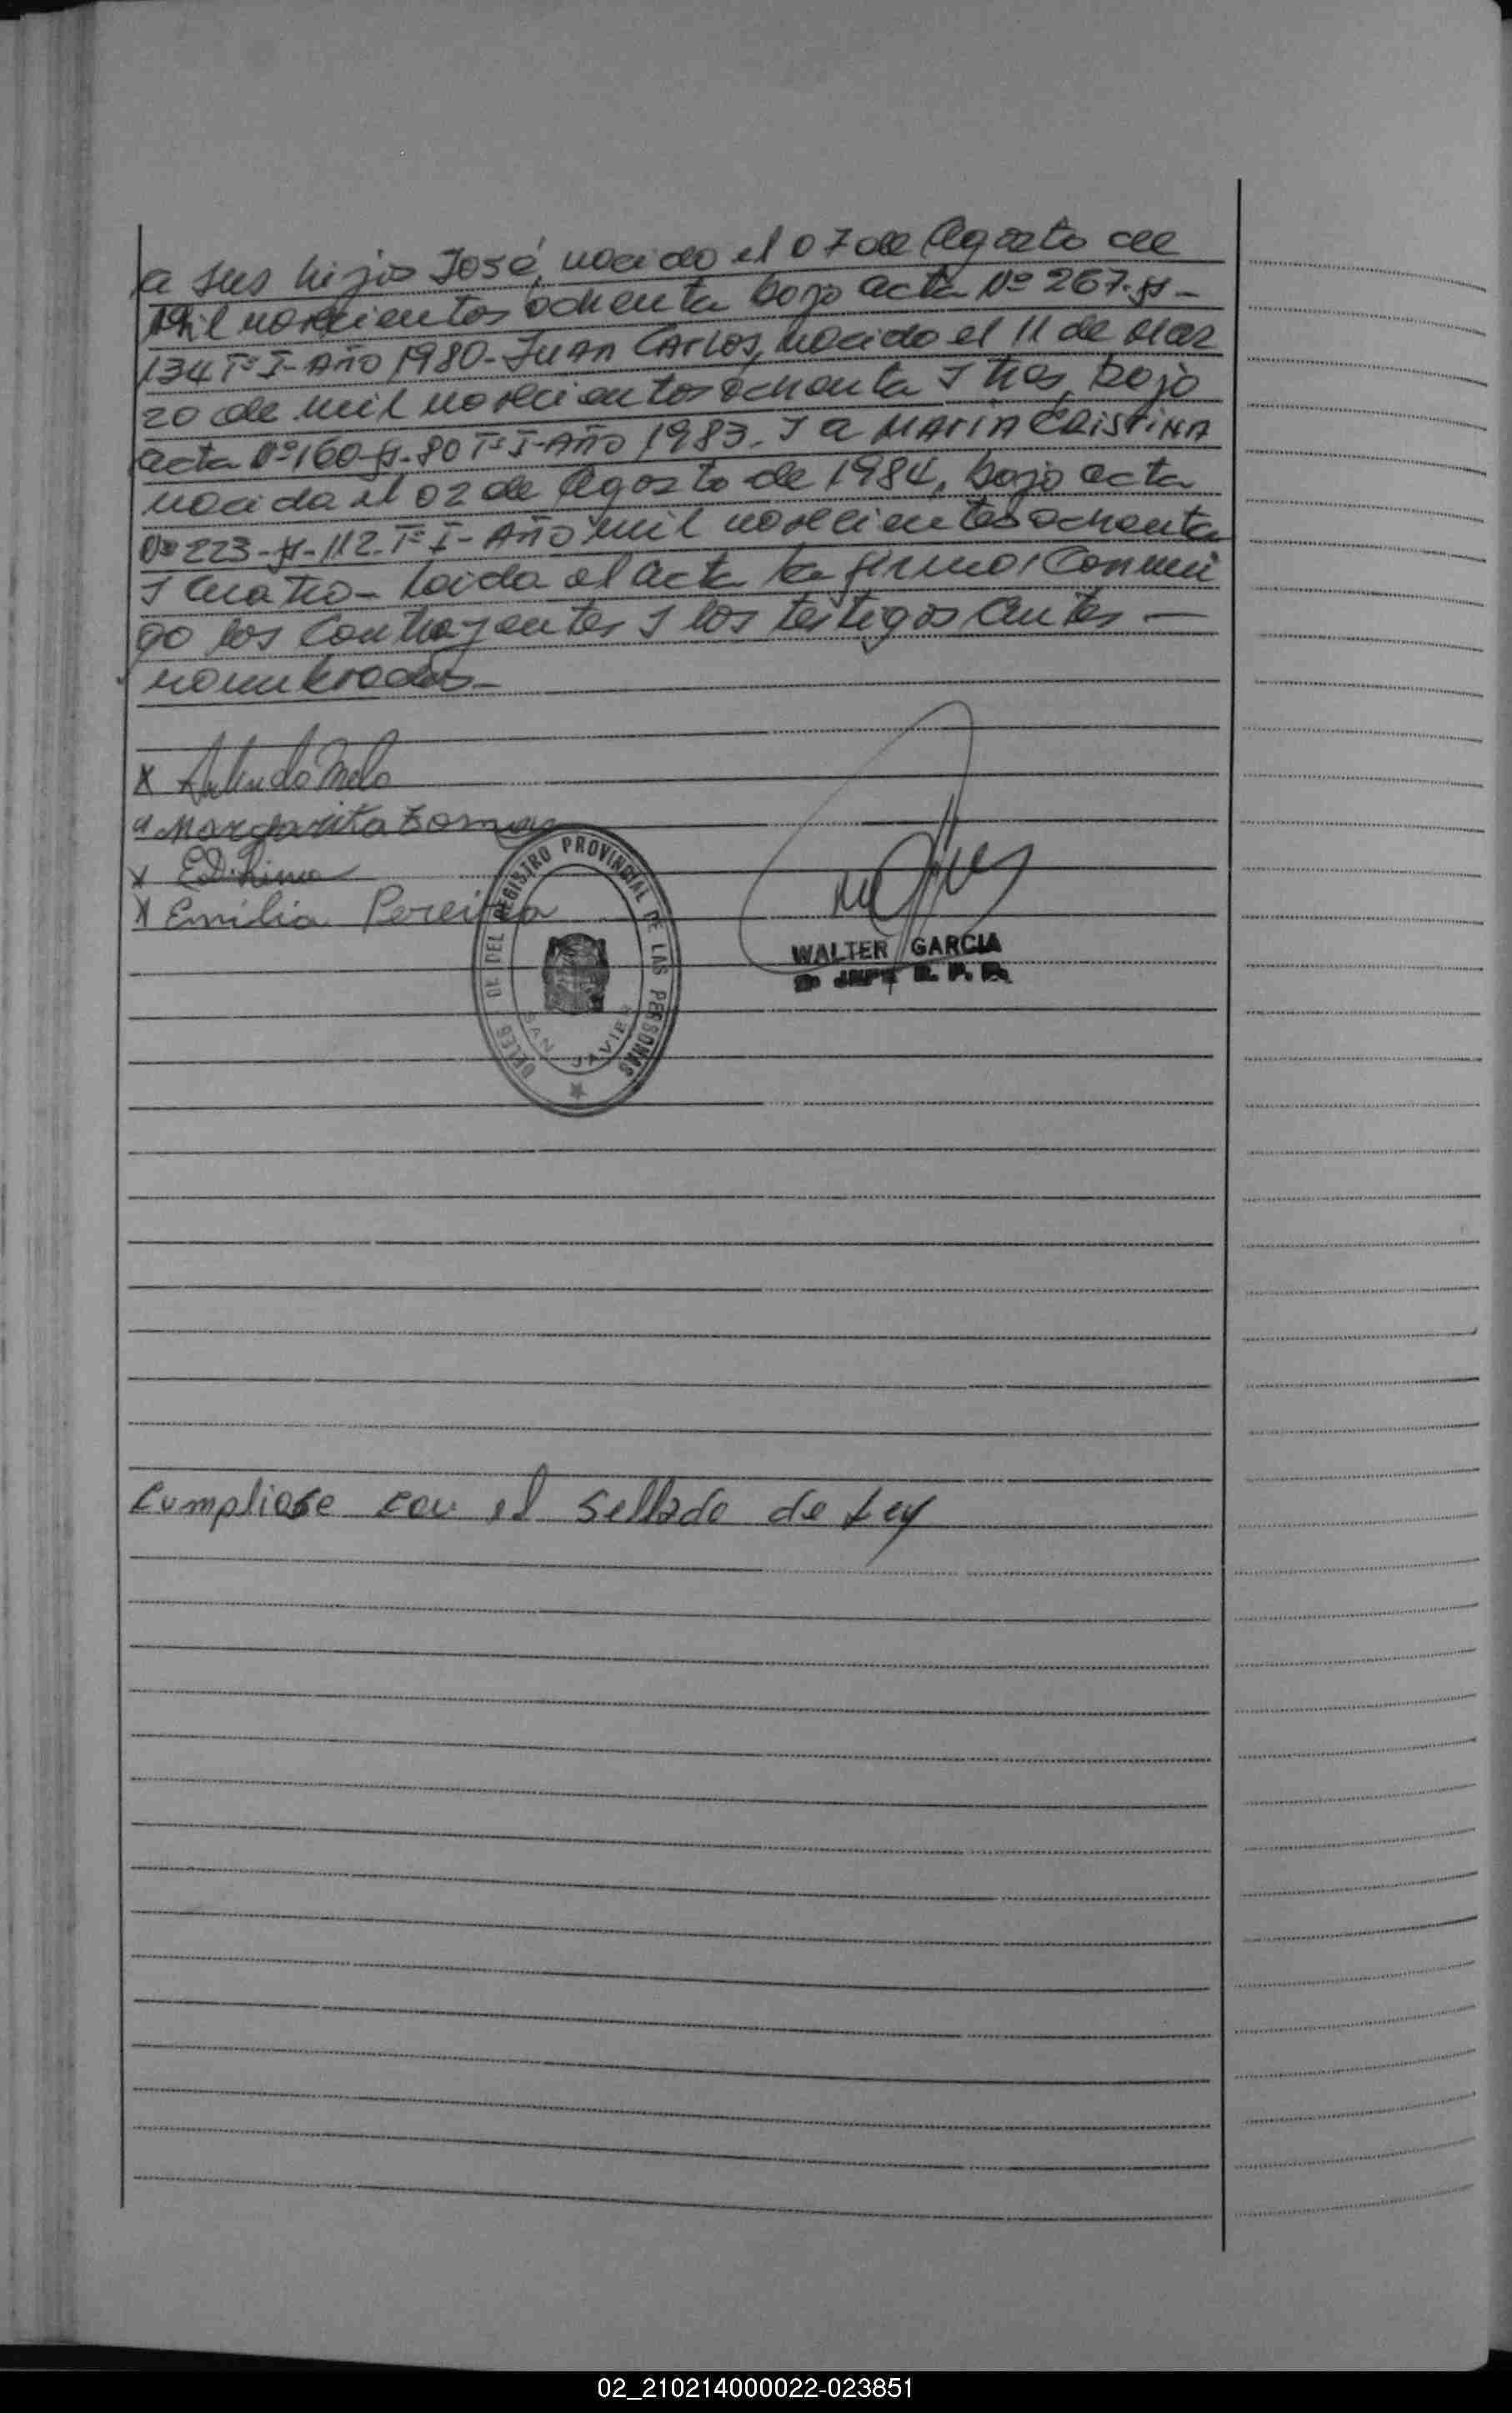 a sus hijos José, nacido el 07 de Agosto de
Mil novecientos ochenta bajo acta Nº 267-fº-
134 Tº I-Año 1980- Juan Carlos, nacido el 11 de Mar
zo de mil novecientos ochenta y tres, bajo
acta Nº 160-fº-80 Tº I-Año 1983- y a MARIA CRISTINA
nacida el 02 de Agosto de 1984, bajo acta
Nº 223-fº-112-Tº I-Año mil novecientos ochenta
y cuatro- Leida el acta la firman conmi
go los contrayentes y los testigos antes —
nombrados-
x Melo
Margarita
x
x Emilia Pereira
DEL REGISTRO PROVINCIAL DE LAS PERSONAS
SAN JAVIER
WALTER GARCIA
Cumpliose con el Sellado de Ley
02_210214000022-023851